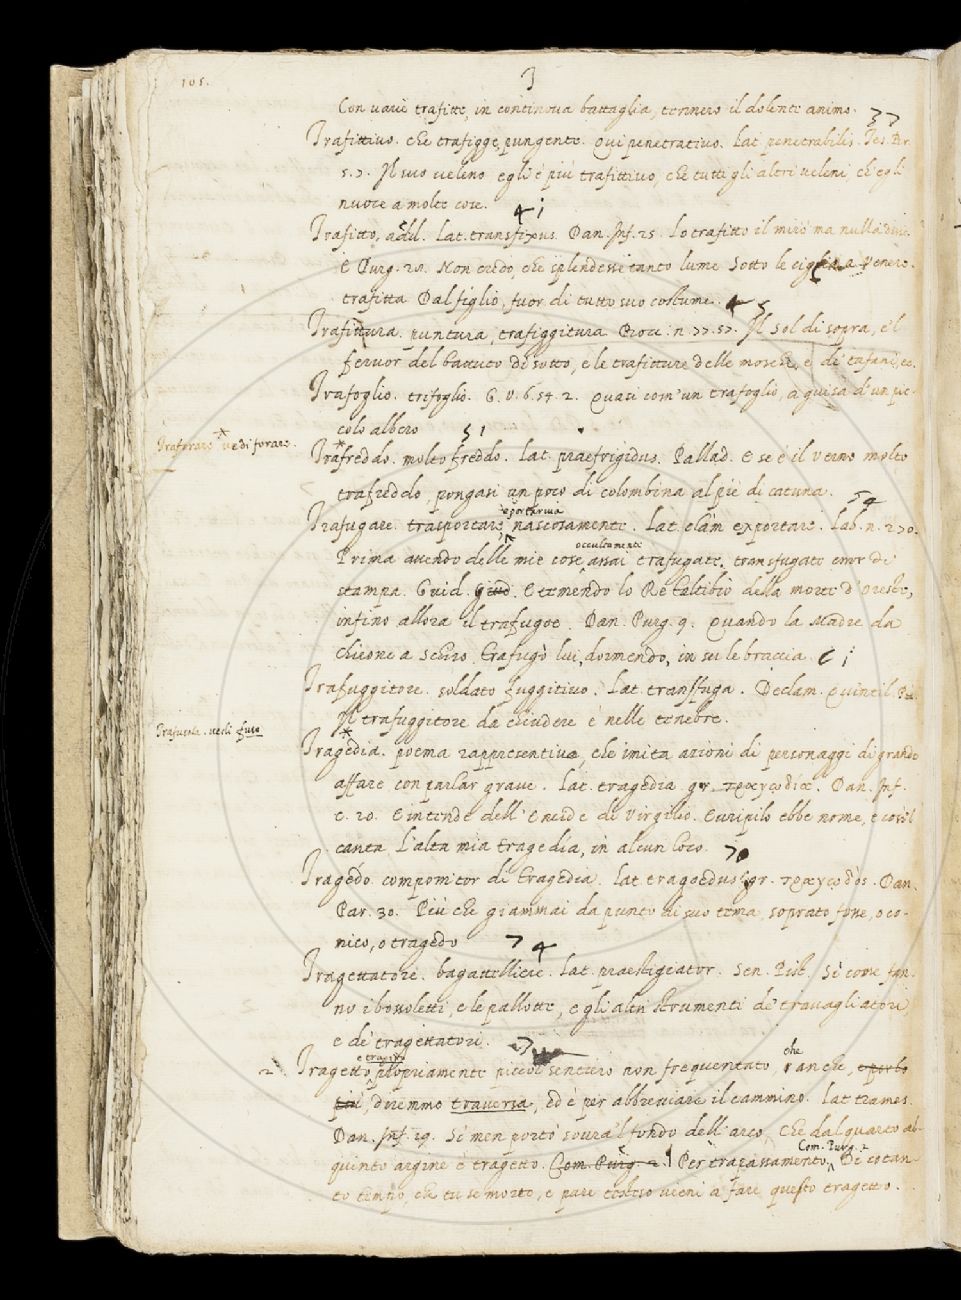 105.
3
Con varie trafitte, in continova battaglia, tennero il dolente animo.
33
Trafittivo. che trafigge, pungente. Qui penetrativo. Lat. penetrabilis. Tes. Br.
5. 3. Il suo veleno egli è più trafittivo, che tutti gli altri veleni, ch'egli
nuoce a molte cose.
4 i
Trafitto, add. Lat. transfixus. Dan. Inf. 25. Lo trafitto il mirò ma nulla disse.
E Purg. 28. Non credo, che splendesse tanto lume Sotto le ciglia a Venere.
trafitta Dal figlio, fuor di tutto suo costume.
4 5
Trafittura. puntura, trafiggitura Bocc. n. 77. 57. Il sol di sopra, e'l
fervor del battuto di sotto, e le trafitture delle mosche, e de' tafani, ec.
Trafoglio. trifoglio. G. V. 6. 54. 2. Quasi com'un trafoglio, a guisa d'un pic-
colo albero
5 1
Traforare vedi forare.
Trafreddo. molto freddo. Lat. praefrigidus. Pallad. E se è il verno molto
trafreddo, pongasi un poco di colombina al piè di catuna.
54
Trafugare. trasportare, nascosamente. Lat. clam exportare. Lab. n. 270.
e portar via
Prima avendo delle mie cose assai trafugate. transfugate error di
occultamente
stampa. Guid. Giud. E temendo lo Re Taltibio della morte d'Oreste,
infino allora il trafugoe. Dan. Purg. 9. Quando la Madre da
Chirone a Schiro, Trafugò lui, dormendo, in su le braccia.
Trafuggitore. soldato fuggitivo. Lat. transfuga. Declam. Quintil.
Il trafuggitore da chiudere è nelle tenebre.
Trafusola. vedi fuso
Tragedia. poema rappresentivo, che imita azioni di personaggi di grande
affare con parlar grave. Lat. tragedia. gr. τραγῳδία. Dan. Inf.
c. 20. E intende dell'Eneide di Virgilio. Euripilo ebbe nome, e così'l
canta L'alta mia tragedia, in alcun loco.
Tragedo. compomitor di tragedia. Lat. tragoedus. gr. τραγῳδός. Dan.
Par. 30. Più che giammai da punto di suo tema, soprato fosse, o co-
mico, o tragedo
7 4
Tragettatore. bagattelliere. Lat. praestigiator. Sen. Pist. Sì come fan-
no i bossoletti, e le pallotte, e gli altri strumenti de' travagliatori
e de' tragettatori.
2 Tragetto, propriamente piccol sentiero non frequentato, che anche,
e tragitto
diremmo traversa, ed è per abbreviare il cammino. Lat. trames.
Dan. Inf. 19. Sì men portò sovra'l fondo dell'arco, Che dal quarto al
quinto argine è tragetto. Com. Purg. 2. Per trapassamento. Di cotan-
Com. Purg. 2
to tempo, che tu se morto, e pure testeso vieni a fare questo tragetto.